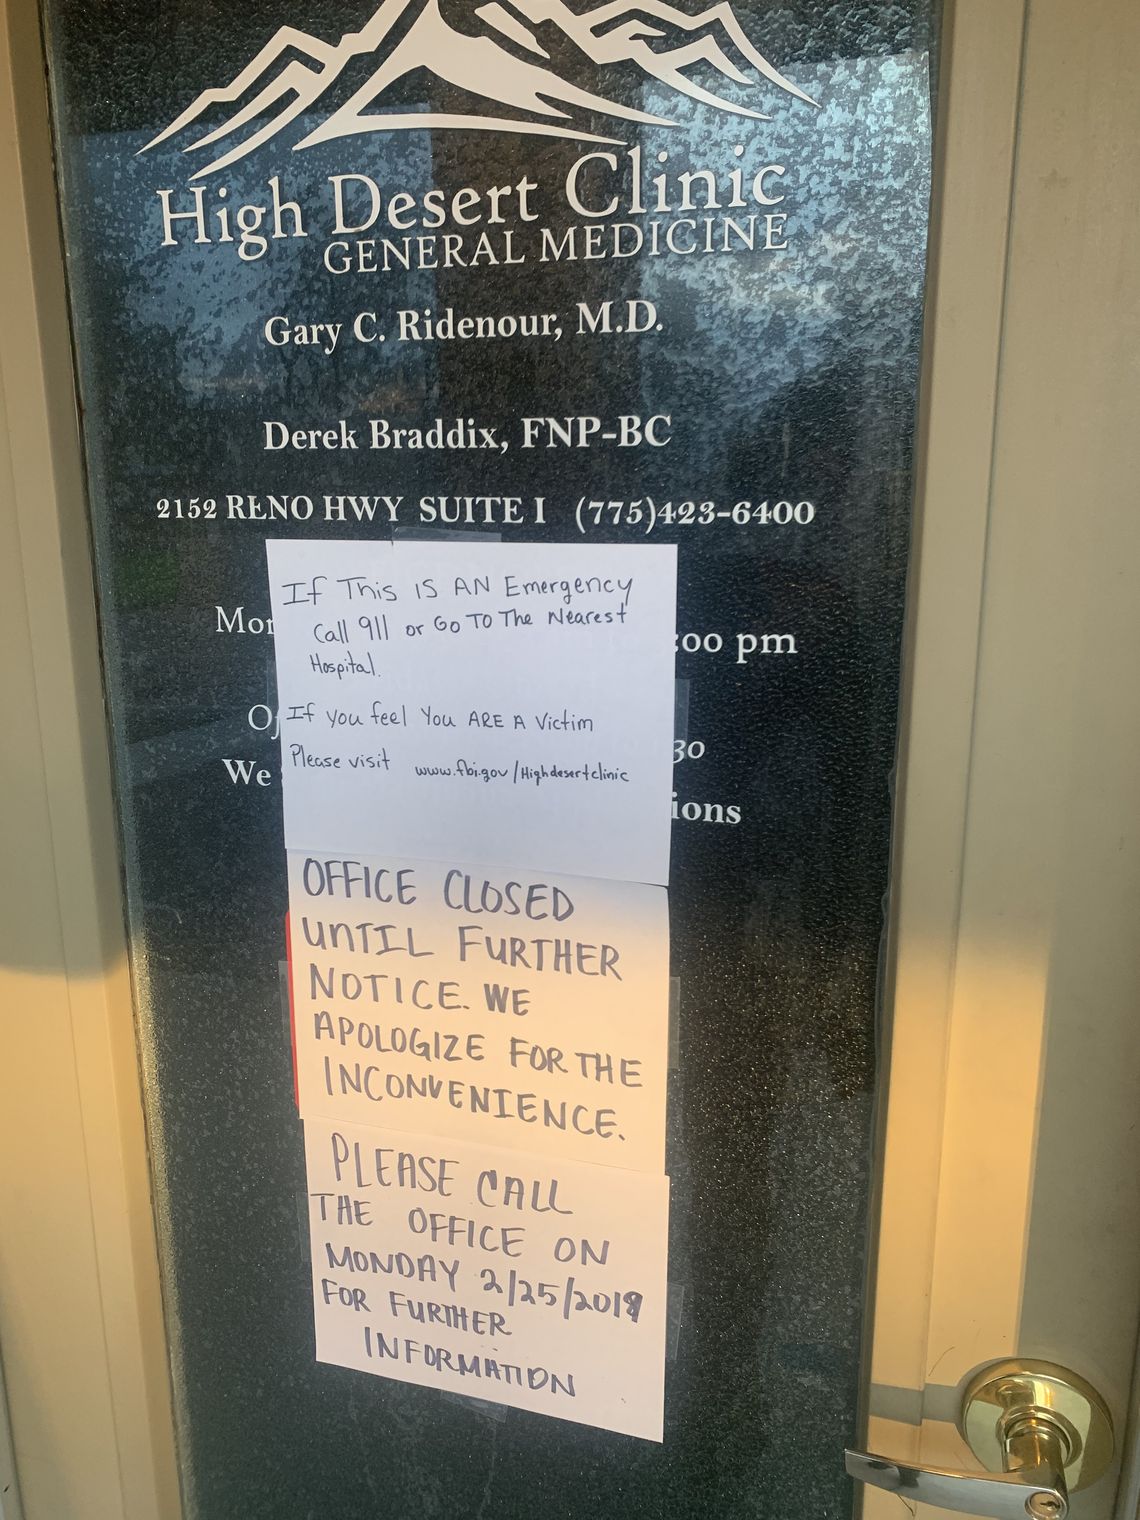 High Desert Clinic
GENERAL MEDICINE
Gary C. Ridenour, M.D.
Derek Braddix, FNP-BC
2152 RENO HWY SUITE I (775)423-6400
If This IS AN Emergency
Call 911 or GO TO The Nearest
Hospital.
If you feel You ARE A Victim
Please visit www.fbi.gov/Highdesertclinic
:00 pm
30
We
ions
OFFICE CLOSED
UNTIL FURTHER
NOTICE. WE
APOLOGIZE FOR THE
INCONVENIENCE.
PLEASE CALL
THE OFFICE ON
MONDAY 2/25/2019
FOR FURTHER
INFORMATION